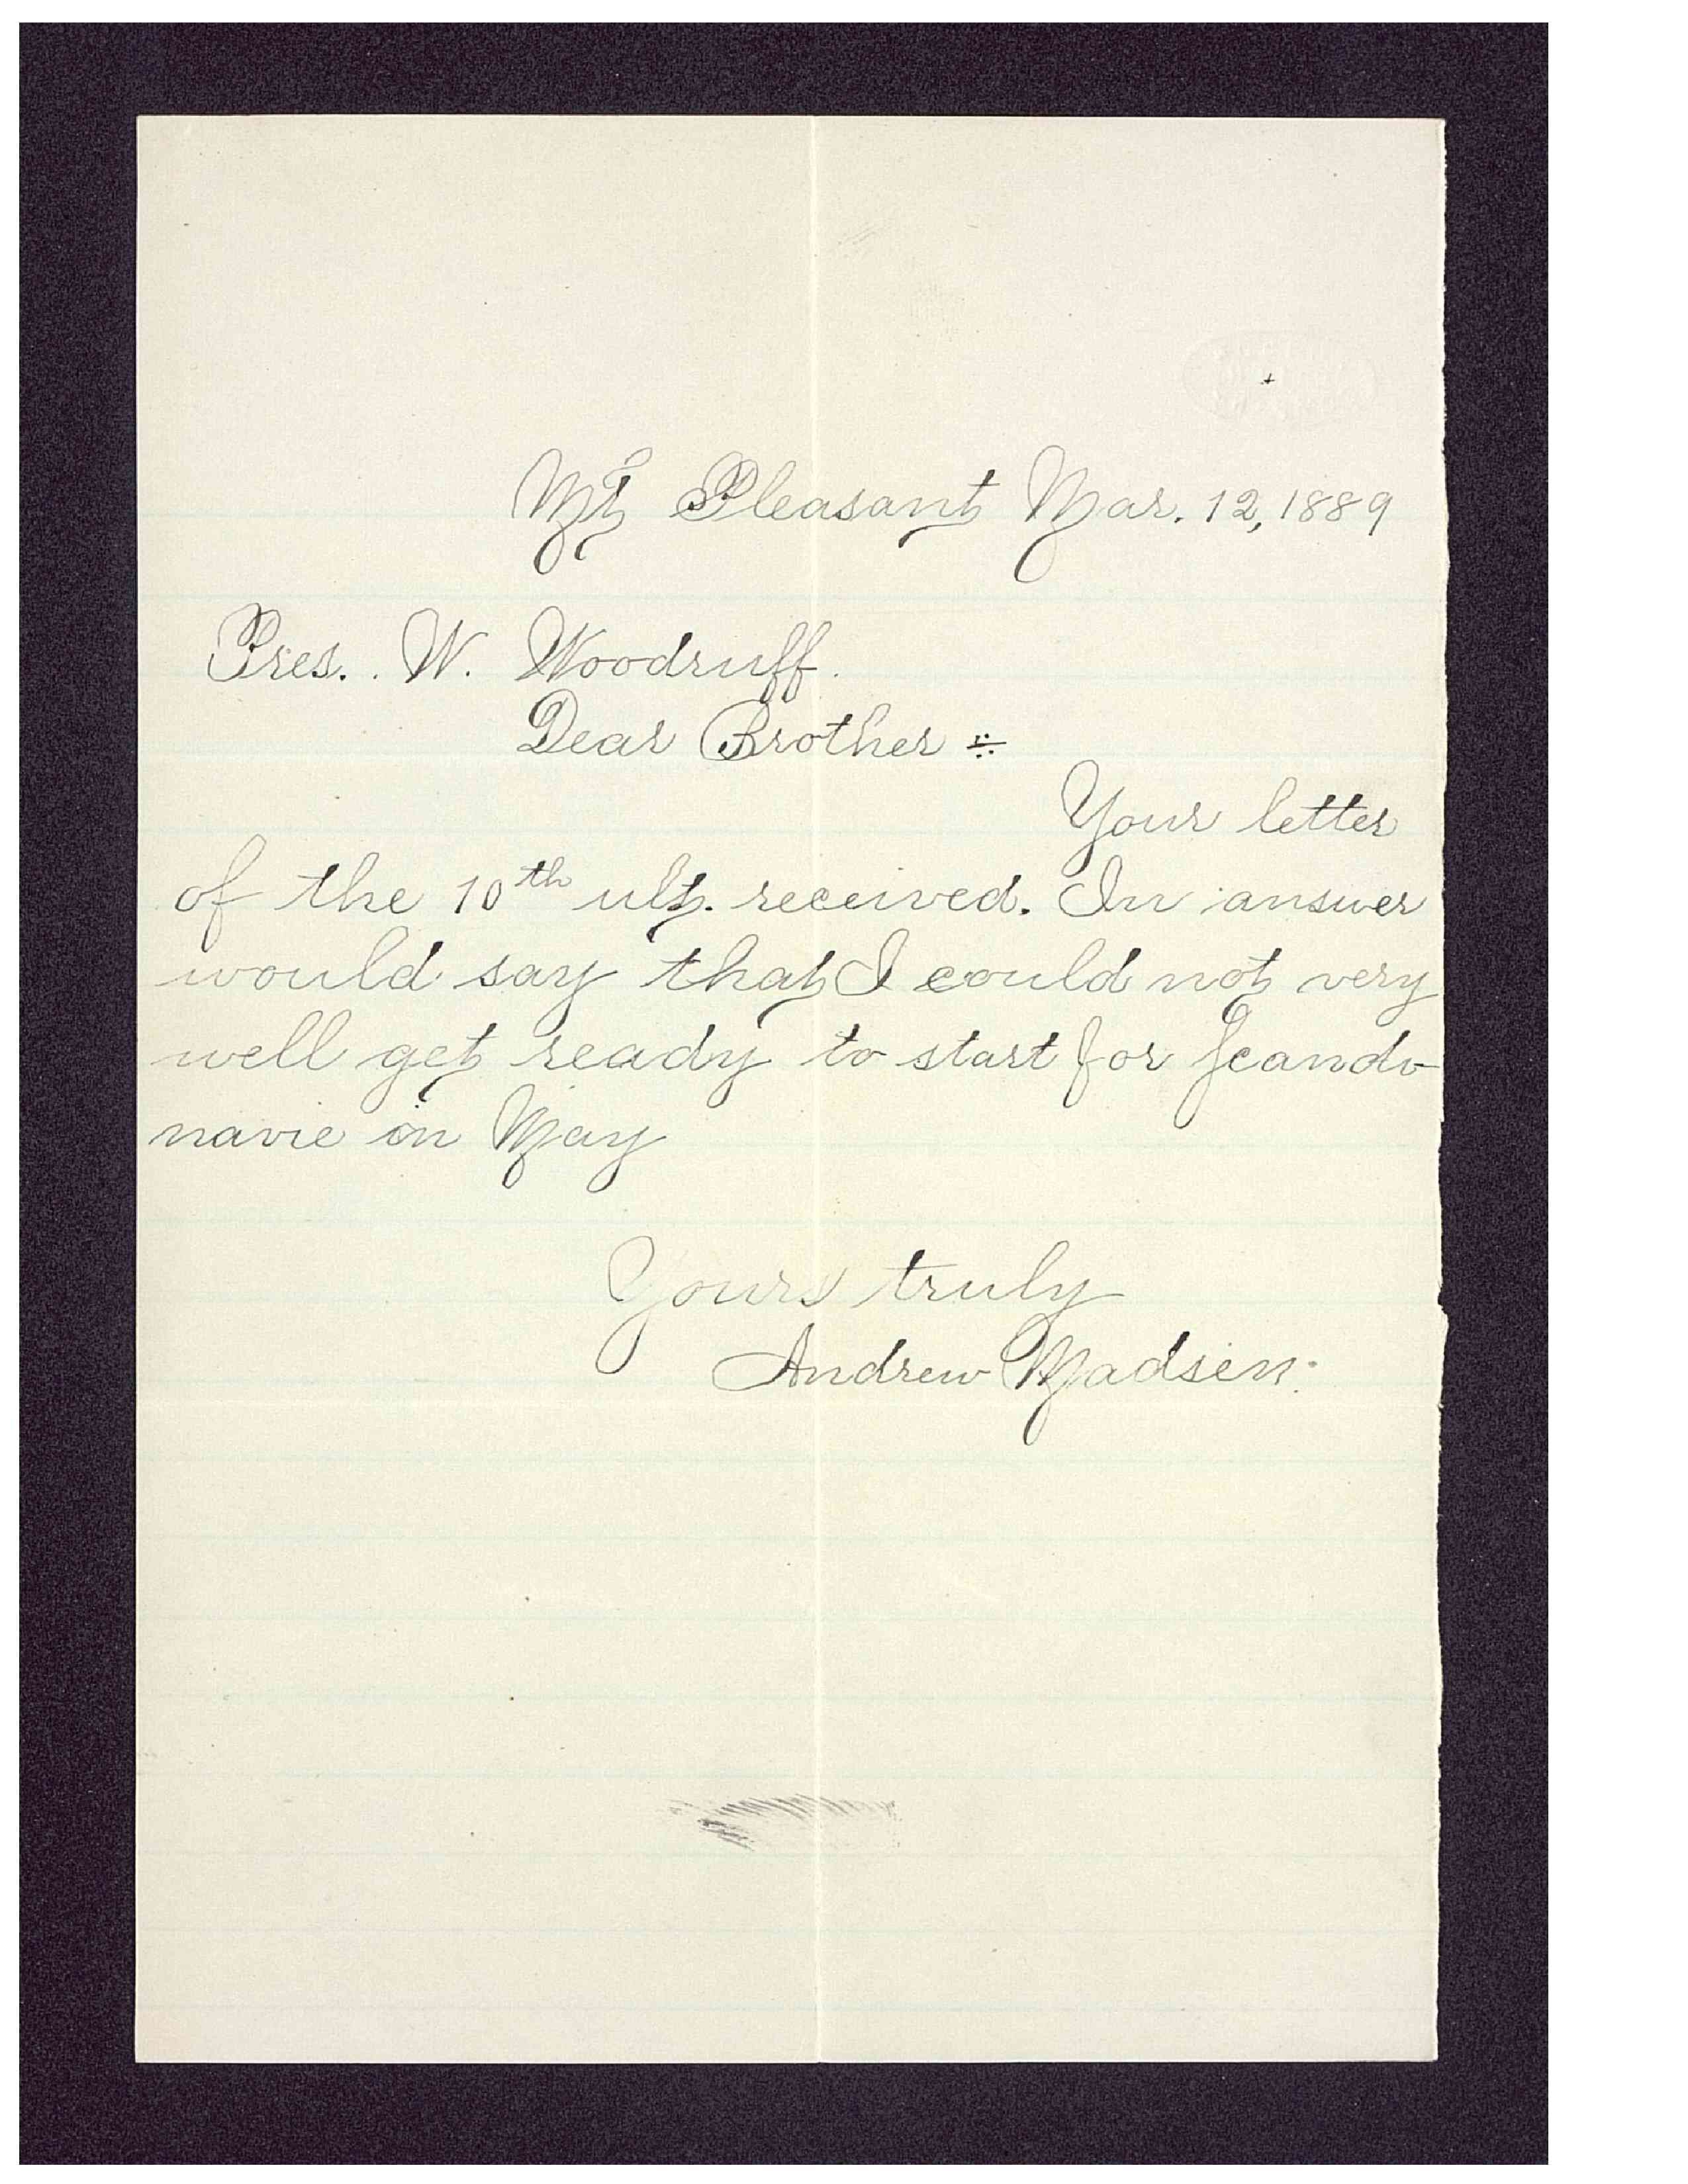 Mt Pleasant Mar. 12, 1889
Pres. W. Woodruff.
Dear Brother :-
Your letter
of the 10th ult. received. In answer
would say that I could not very
well get ready to start for Scandi-
navie in May
Yours truly
Andrew Madsen.